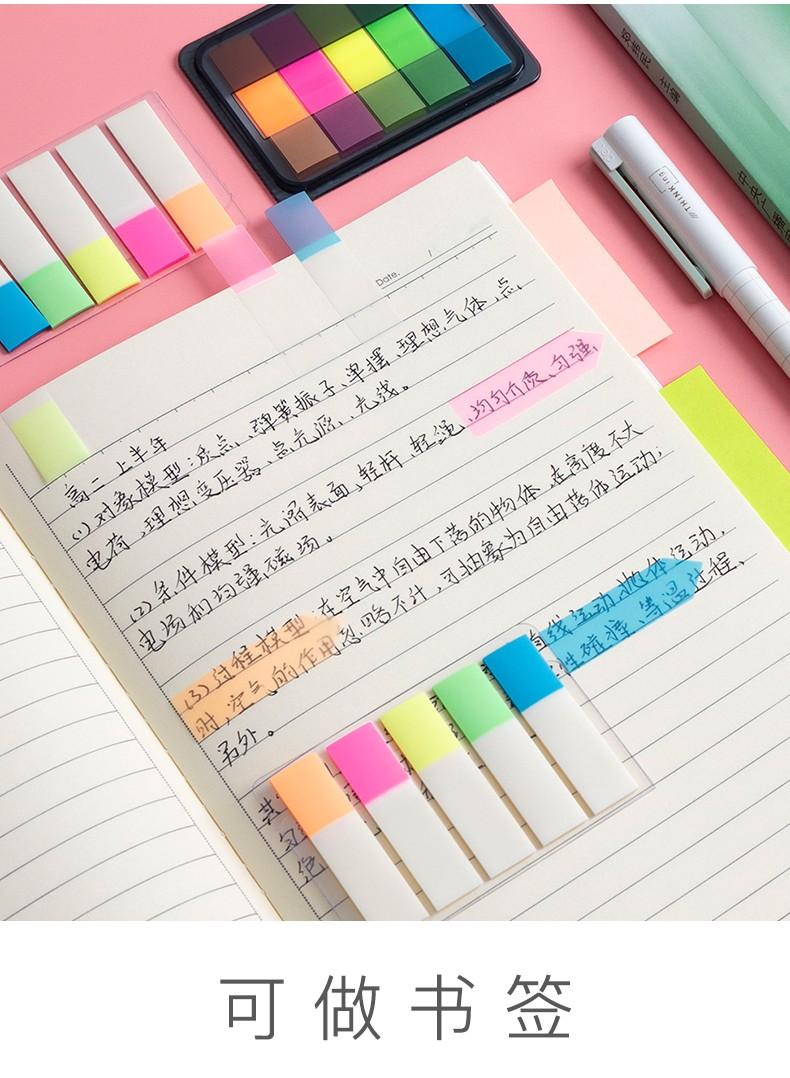 主编
中央广播
THINK
ing
Date. /
高二上半年
(1) 对象模型:质点、弹簧振子、单摆、理想气体、点
电荷、理想变压器、点光源、光线。
(2) 条件模型:光滑表面、轻杆、轻绳、均匀介质、匀强
电场和均强磁场。
(3) 过程模型:在空气中自由下落的物体,在高度不大
时,空气的作用忽略不计,可抽象为自由落体运动;
另外。
直线运动、抛体运动,
性碰撞、等温过程、
可做书签